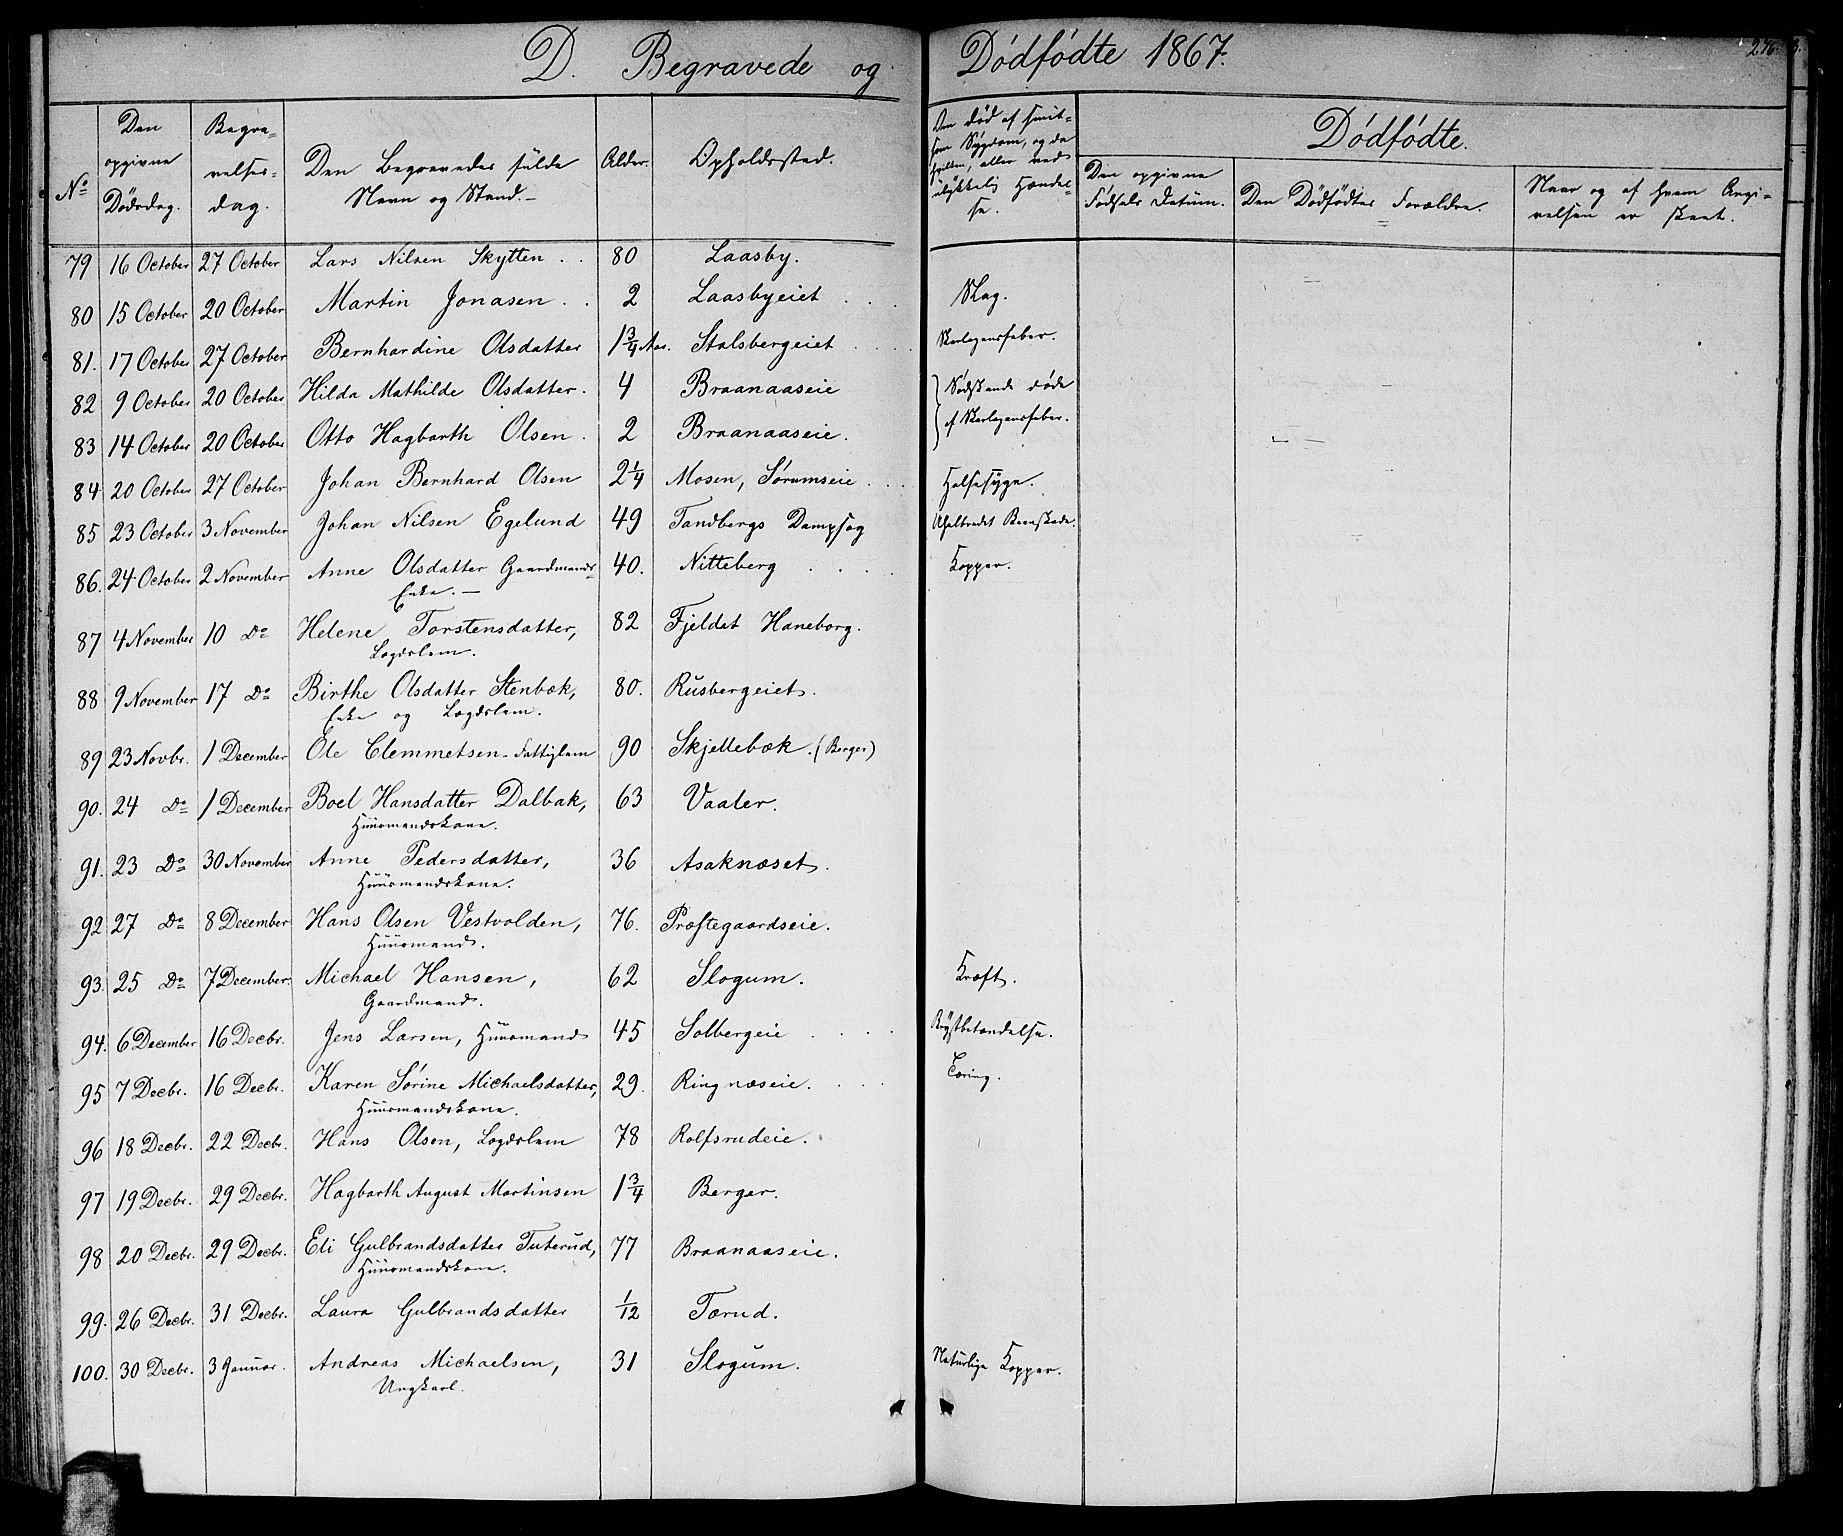 D. Begravede og Dödfödte 1867.
276.
No
Den opgivne Dödsdag.
Begravelsesdag.
Den Begravedes fulde Navn og Stand.
Alder.
Opholdssted.
Om död af smitsom Sygdom, og da hvilken, eller ved ulykkelig Hændelse.
Dödfödte.
Den opgivne Födsels Datum.
Den Dödfödtes Forældre.
Naar og af hvem Angivelsen er skeet.
79 16 October 27 October Lars Nilsen Skytten 80 Laasby.
80 15 October 20 October Martin Jonasen 2 Laasbyeiet Slag.
81. 17 October 27 October Bernhardine Olsdatter 1 3/4 Aar. Stalsbergeiet Skarlagensfeber.
82 9 October 20 October Hilda Mathilde Olsdatter. 4 Braanaaseie Södskende döde
83 14 October 20 October Otto Hagbarth Olsen. 2 Braanaaseie. af Skarlagensfeber.
84 20 October 27 October Johan Bernhard Olsen 2 1/4 Mosen, Sörumseie Halsesyge.
85 23 October 3 November Johan Nilsen Egelund 49 Tandbergs Dampsag Uhelbredet Beenskade.
86. 24 October 2 November Anne Olsdatter Gaardmands- 40. Nitteberg Kopper.
Enke.
87 4 November 10 Do Helene Torstensdatter, 82 Fjeldet Haneborg.
Lægdslem.
88 9 November 17 Do Birthe Olsdatter Stenbæk, 80. Rusbergeiet.
Enke og Lægdslem.
89 23 Novbr. 1 December Ole Clemmetsen Fattiglem 90 Skjellebæk. (Berger)
90. 24 Do 1 December Boel Hansdatter Dalbak, 63 Vaaler.
Huusmandskone.
91. 23 Do 30 November Anne Pedersdatter, 36 Asaknæset.
Huusmandskone.
92 27 Do 8 December Hans Olsen Vestvolden, 76. Præstegaardseie.
Huusmand.
93. 25 Do 7 December. Michael Hansen, 62 Slogum. Kræft.
Gaardmand.
94. 6 December 16 Decbr. Jens Larsen, Huusmand 45 Solbergeie Brystbetændelse.
95 7 Decbr. 16 Decbr. Karen Sörine Michaelsdatter, 29. Ringnæseie. Tæring.
Huusmandskone.
96 18 Decbr. 22 Decbr. Hans Olsen, Lægdslem 78 Rolfsrudeie.
97 19 Decbr. 29 Decbr. Hagbarth August Martinsen 1 3/4 Berger.
98 20 Decbr. 29 Decbr. Eli Gulbrandsdatter Tuterud, 77 Braanaaseie.
Huusmandskone.
99. 26 Decbr. 31 Decbr. Laura Gulbrandsdatter 1/12 Tærud.
100. 30 Decbr. 3 Januar. Andreas Michaelsen, 31 Slogum. Naturlige Kopper.
Ungkarl.